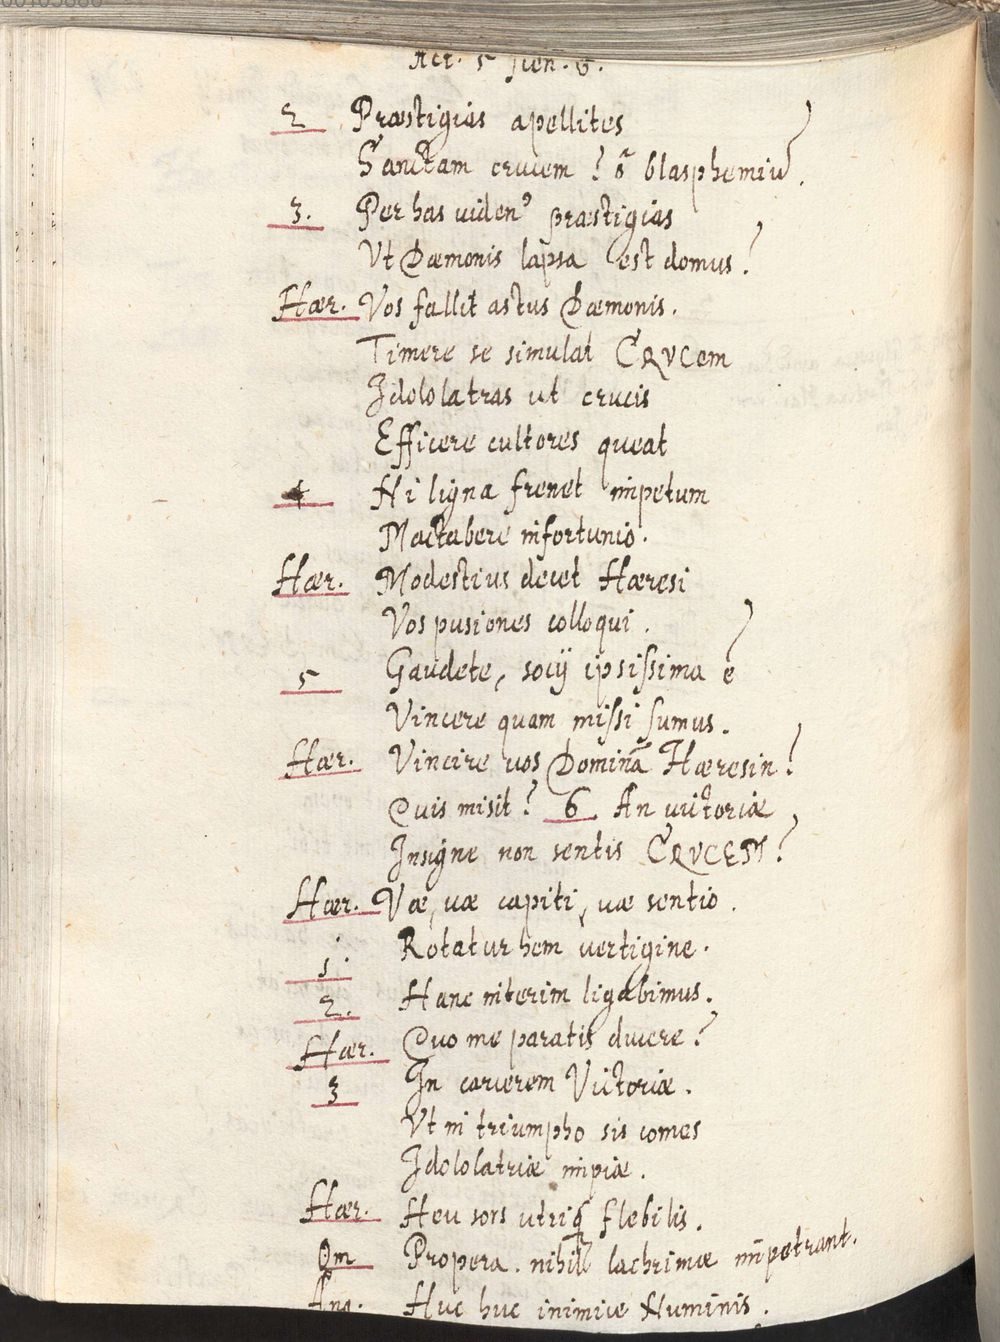 Act. 5 scen. 6.
2 Præstigias apellites
Sanctam crucem? ô blasphemia.
3. Per has uiden' præstigias
Vt Dæmonis lapsa est domus?
Hær. Vos fallit astus Dæmonis.
Timere se simulat CRVCem
Idololatras ut crucis
Efficere cultores queat
4 Ni ligna frenet impetum
Mactabere infortunio.
Hær. Modestius decet Hæresi
Vos pusiones colloqui.
5 Gaudete, socij ipsissima ē
Vincere quam missi sumus.
Hær. Vincire uos Dominā Hæresin?
Quis misit? 6. An uictoriæ
Insigne non sentis CRVCEM?
Hær. Væ, uæ capiti, uæ sentio.
1. Rotatur hem uertigine.
2. Hanc interim ligabimus.
Hær. Quo me paratis ducere?
3 In carcerem Victoriæ.
Vt in triumpho sis comes
Idololatriæ impiæ.
Hær. Heu sors utriq flebilis.
Om Propera. nihil lachrimæ impetrant.
Ang. Huc huc inimice Numinis.